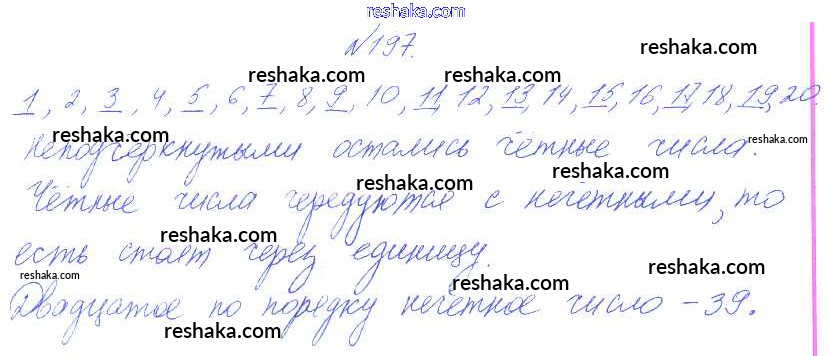 reshaka.com
№197.
reshaka.com reshaka.com reshaka.com
1, 2, 3, 4, 5, 6, 7, 8, 9, 10, 11, 12, 13, 14, 15, 16, 17, 18, 19, 20.
reshaka.com reshaka.com reshaka.com reshaka.com
Неподчёркнутыми остались чётные числа.
reshaka.com reshaka.com
Чётные числа чередуются с нечётными, то
reshaka.com reshaka.com
есть стоят через единицу.
reshaka.com reshaka.com reshaka.com
Двадцатое по порядку нечётное число – 39.
reshaka.com reshaka.com